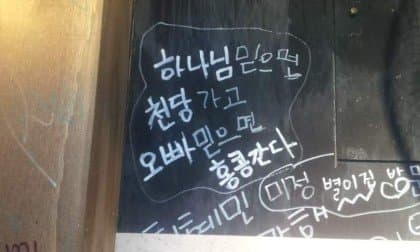 하나님 믿으면
천당 가고
오빠 믿으면
홍콩간다
미정 별이집 방문
혜민